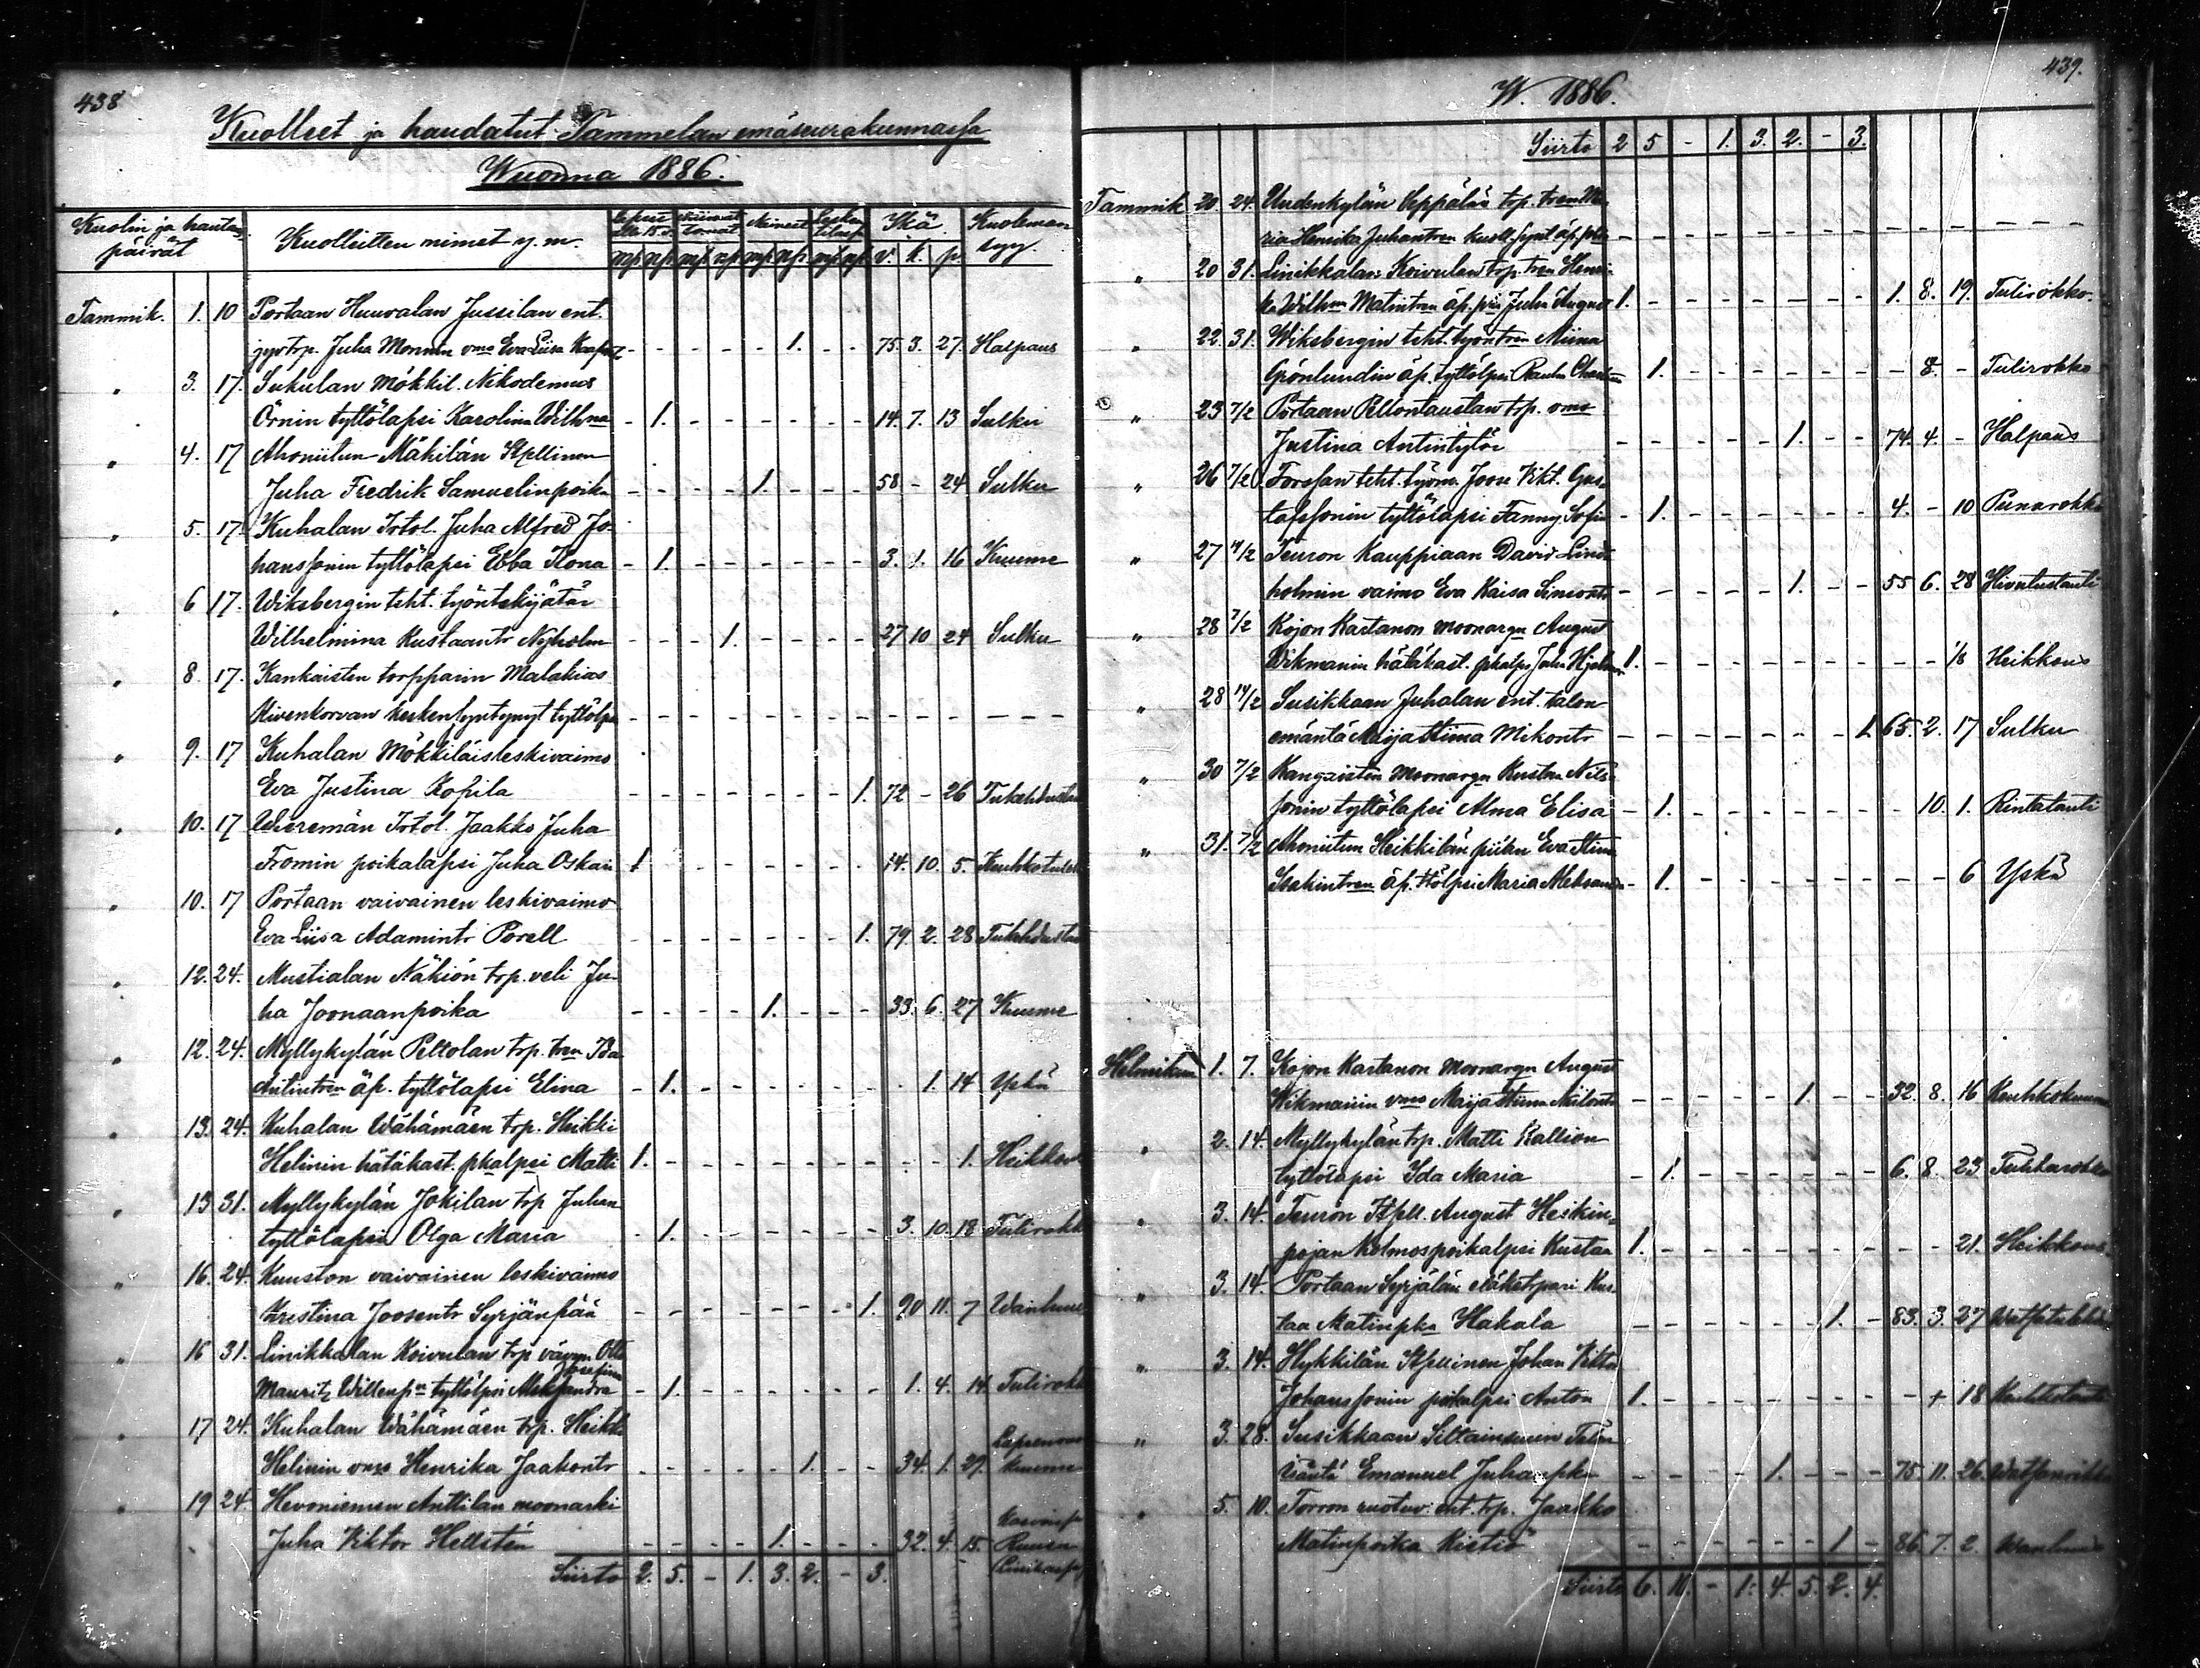 438
Kuolleet ja haudatut Tammelan emäseurakunnassa
Wuonna 1886.
Kuolin ja hautaus päivät
Kuolleitten nimet y. m.
Ikä
Kuoleman syy.
mp. np. mp. np. mp. np. mp. np. v. k. p.
Tammik. 1. 10 Portaan Huuvalan Jussilan ent.
trp. Juha vmo Eva Liisa - - - - - 1. - - 75. 3. 27. Halpaus
" 3. 17. Sukulan mökkil. Nikodemus
Örnin tyttölapsi Karolina Wilhna - 1. - - - - - - 14. 7. 13 Sulku
" 4. 17 Ahoniitun Mäkilän Itsellinen
Juha Fredrik Samuelinpoika - - - - 1. - - - 58 - 24 Sulku
" 5. 17. Kuhalan Irtol. Juha Alfred Jo-
hanssonin tyttölapsi Ebba Ilona - 1. - - - - - - 3. 1. 16 Kuume
" 6 17. Wiksbergin teht. työntekijätär
Wilhelmina Kustaantr Nyholm - - - 1. - - - - 27 10 24 Sulku
" 8. 17. Kankaisten torpparin Malakias
Kivenkorvan keskensyntynyt tyttölps - - - - - - - - - - -
" 9. 17 Kuhalan Mökkiläisleskivaimo
Eva Justina Kopila - - - - - - - 1. 72 - 26
" 10. 17 Irtol. Jaakko Juha
Fromin poikalapsi Juha Oskari 1 - - - - - - - 14. 10. 5.
" 10. 17 Portaan vaivainen leskivaimo
Eva Liisa Adamintr Porell - - - - - - - 1. 79. 2. 28
" 12. 24. Mustialan Näkiön trp. veli Ju-
ha Joonaanpoika - - - - 1. - - - 33. 6. 27 Kuume
" 12. 24. Myllykylän Peltolan trp. tren Ida
Antintren äp. tyttölapsi Elina - 1. - - - - - - - 1. 14 Yskä
" 13. 24. Kuhalan Wähämäen trp. Heikki
Helinin hätäkast. pkalpsi Matti 1. - - - - - - - - - 1. Heikkous
" 13 31. Myllykylän Jokilan trp Juhan
tyttölapsi Olga Maria - 1. - - - - - - 3. 10. 18 Tulirokko
" 16. 24. Kuuston vaivainen leskivaimo
Kristina Joosentr Syrjänpää - - - - - - - 1. 90 11. 7
" 16 31. Linikkalan Koivulan trp vävyn Otto
Josefina
Mauritz Willenpn tyttölpsi Aleksandra - 1. - - - - - - 1. 4. 14. Tulirokko
" 17 24. Kuhalan Wähämäen trp. Heikki
Helinin vmo Henrika Jaakontr - - - - - 1. - - 34. 1. 29. kuume
" 19 24. Hevoniemen Anttilan
Juha Viktor Hellstén - - - - 1. - - - 32. 4. 15.
Siirto 2. 5. - 1. 3. 2. - 3.
439.
W. 1886.
Siirto 2 5 - 1. 3. 2. - 3.
Tammik 20 24. Uudenkylän Seppälän trp. tren Ma-
ria Henrika Juhantren kuoll. synt. äp. - - - - - - - - - - -
" 20 31. Linikkalan Koivulan trp. tren Henri-
ka Wilhen Matintren äp. Juha August 1. - - - - - - - 1. 8. 19. Tulirokko.
" 22. 31. Wiksbergin teht. työntren Miina
Grönlundin äp. tyttölpsi - 1. - - - - - - - 8. - Tulirokko
" 23 7/2 Portaan Pellontaustan trp. vmo
Justina Antintytär - - - - - 1. - - 74. 4. - Halpaus
" 26 7/2 Forssan teht. työm. Joose Vikt. Gus-
tafssonin tyttölapsi Fanny Sofia - 1. - - - - - - 4. - 10 Punarokko
" 27 14/2 Teuron Kauppiaan David Lind-
holmin vaimo Eva Kaisa Simontr - - - - - 1. - - 55 6. 28 Hivutustauti
" 28 7/2 Kojon Kartanon August
Wikmanin hätäkast. pkalps Juho 1. - - - - - - - - - 1/8 Heikkous
" 28 14/2 Susikkaan Juhalan ent. talon
emäntä Maija Stiina Mikontr - - - - - - - 1. 65. 2. 17 Sulku
" 30 7/2 Kangaisten Kustaa Nils-
sonin tyttölapsi Alma Elisa - 1. - - - - - - - 10. 1. Rintatauti
" 31. 7/2 Ahoniitun Heikkilän piian Eva Stina
Isakintren äp. ttölpsi Maria Aleksandra - 1. - - - - - - - - 6 Yskä
Helmikuu 1. 7. Kojon Kartanon August
Wikmanin vmo Maija Stiina - - - - - 1. - - 32. 8. 16 Keuhkokuume
" 2. 14. Myllykylän trp. Matti Kallion
tyttölapsi Ida Maria - 1. - - - - - - 6. 8. 23
" 3. 14. Teuron Itsell. August Heikin-
pojan kolmospoikalpsi Kustaa 1. - - - - - - - - - 21. Heikkous
" 3. 14. Portaan Syrjälän Kus-
taa Matinpka Hakala - - - - - - 1. - 83. 3. 27
" 3. 14. Hykkilän Itsellinen Johan Viktor
Johanssonin pokalpsi Anton 1. - - - - - - - - + 18
" 3. 28. Susikkaan
Isäntä Emanuel Juhanpka - - - - 1. - - - 75. 11. 26.
" 5. 10. Torron ruotuv. ent. trp. Jaakko
Matinpoika Ristiö - - - - - - 1 - 86. 7. 2.
Siirto 6. 10. - 1. 4. 5. 2. 4.